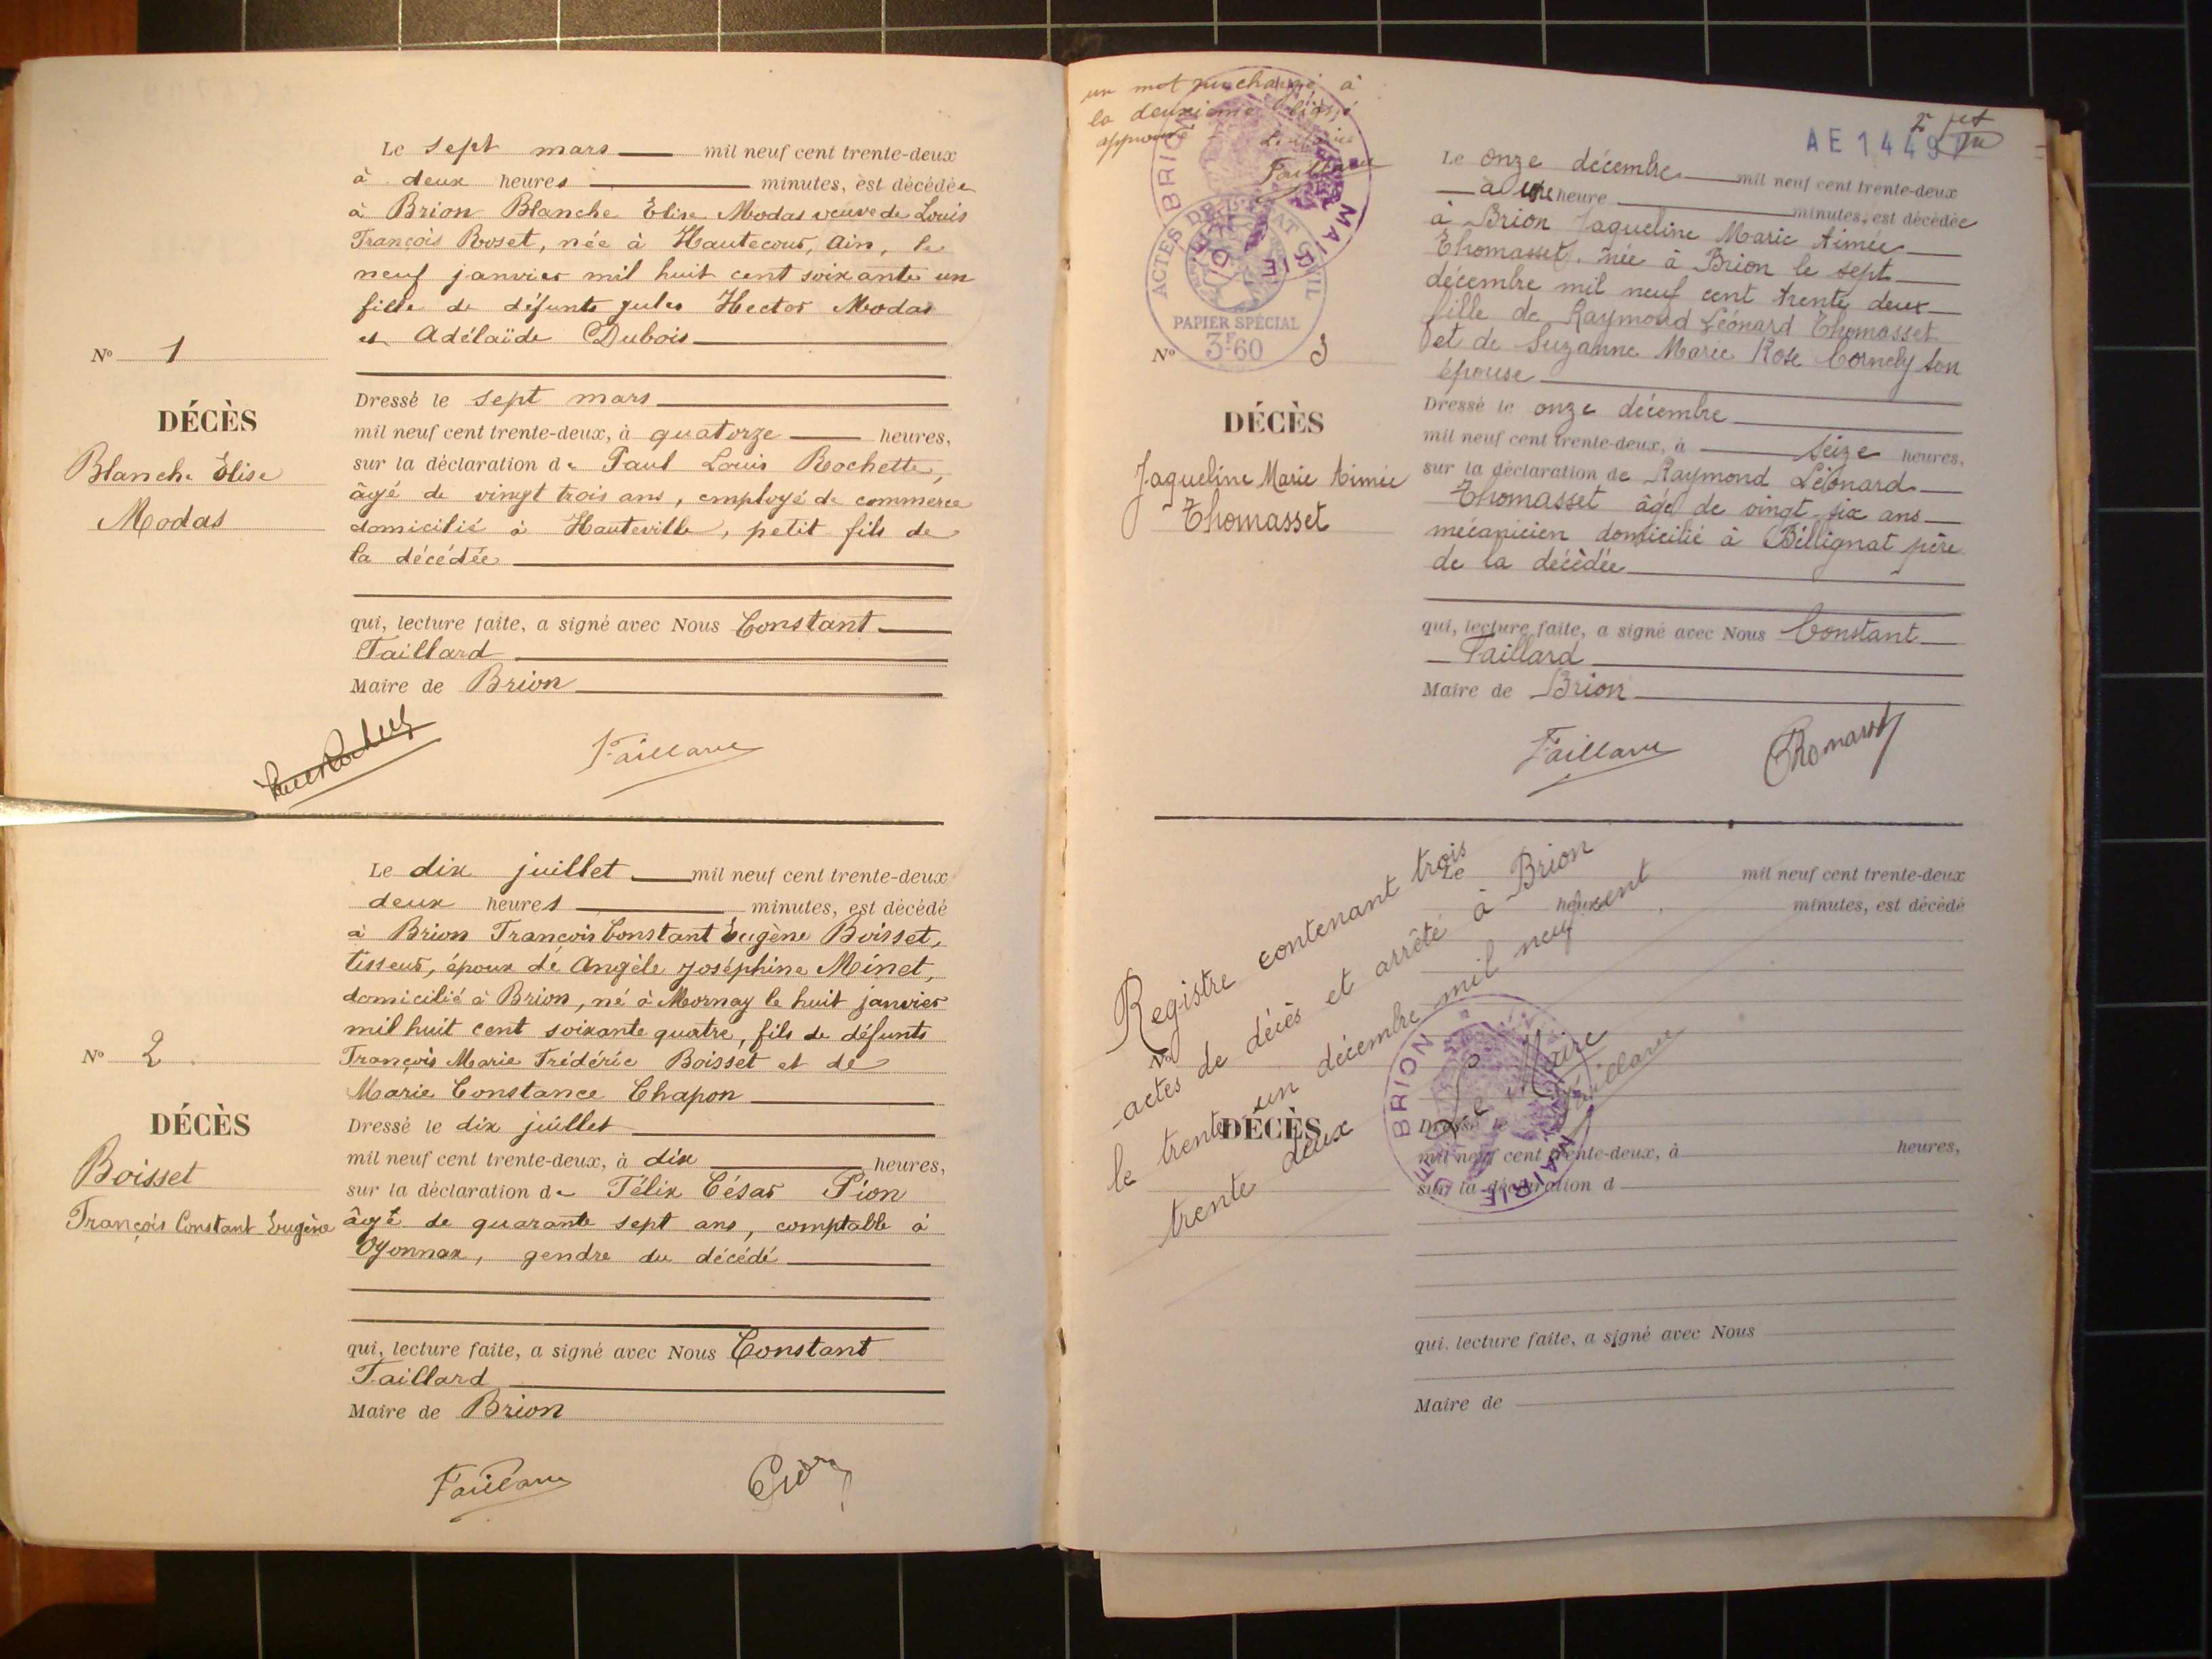 Le sept mars mil neuf cent trente-deux
à deux heures minutes, est décédée
à Brion Blanche Elise Modas veuve de Louis
François Roset, née à Hautecour, Ain, le
neuf janvier mil huit cent soixante un
fille de défunts Jules Hector Modas
et Adélaïde Dubois
N° 1
DÉCÈS
Blanche Elise
Modas
Dressé le sept mars
mil neuf cent trente-deux, à quatorze heures,
sur la déclaration de Paul Louis Rochette,
âgé de vingt trois ans, employé de commerce
domicilié à Hauteville, petit fils de
la décédée
qui, lecture faite, a signé avec Nous Constant
Taillard
Maire de Brion
Taillard
Le dix juillet mil neuf cent trente-deux
deux heures minutes, est décédé
à Brion François Constant Eugène Boisset,
tisseur, époux de Angèle Joséphine Minet,
domicilié à Brion, né à Mornay le huit janvier
mil huit cent soixante quatre, fils de défunts
François Marie Frédéric Boisset et de
Marie Constance Chapon
N° 2
DÉCÈS
Boisset
François Constant Eugène
Dressé le dix juillet
mil neuf cent trente-deux, à dix heures,
sur la déclaration de Félix César Pion
âgé de quarante sept ans, comptable à
Oyonnax, gendre du décédé
qui, lecture faite, a signé avec Nous Constant
Taillard
Maire de Brion
Taillard Pion
un mot surchargé à
la deuxième ligne
approuvé Le Maire
Taillard
MAIRIE DE BRION
ACTES DE L'ETAT CIVIL
PAPIER SPÉCIAL
3F60
AE 1449
Le onze décembre mil neuf cent trente-deux
à une heure minutes, est décédée
à Brion Jaqueline Marie Aimée
Thomasset, née à Brion le sept
décembre mil neuf cent trente deux
fille de Raymond Léonard Thomasset
et de Suzanne Marie Rose Cornely son
épouse
N° 3
DÉCÈS
Jaqueline Marie Aimée
Thomasset
Dressé le onze décembre
mil neuf cent trente-deux, à seize heures,
sur la déclaration de Raymond Léonard
Thomasset âgé de vingt six ans
mécanicien domicilié à Billignat père
de la décédée
qui, lecture faite, a signé avec Nous Constant
Taillard
Maire de Brion
Taillard Thomasset
Registre contenant trois
actes de décès et arrêté à Brion
le trente-un décembre mil neuf cent
trente deux
Le Maire
Taillard
MAIRIE DE BRION
Le mil neuf cent trente-deux
heures minutes, est décédé
N°
DÉCÈS
Dressé le
mil neuf cent trente-deux, à heures,
sur la déclaration d
qui, lecture faite, a signé avec Nous
Maire de